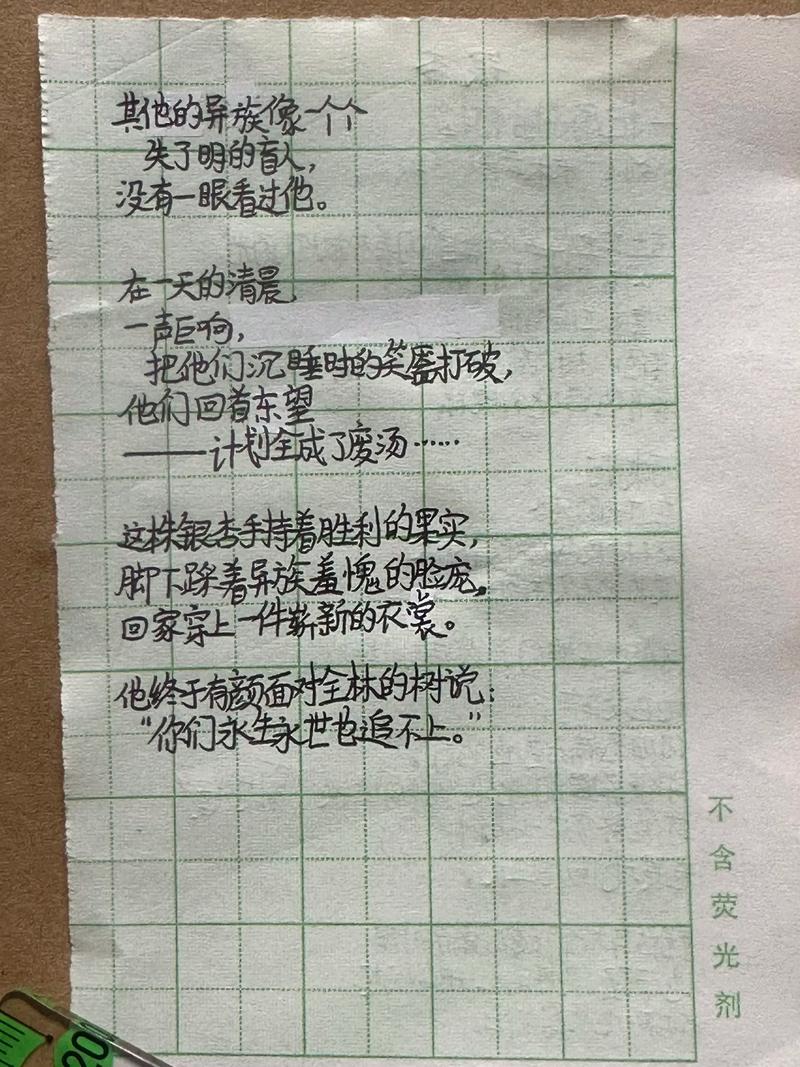 其他的异族像一个个
失了明的盲人，
没有一眼看过他。
在一天的清晨，
一声巨响，
把他们沉睡时的笑靥打破，
他们回首东望
——计划全成了废汤……
这株银杏手持着胜利的果实，
脚下踩着异族羞愧的脸庞。
回家穿上一件崭新的衣裳。
他终于有颜面对全林的树说：
“你们永生永世也追不上。”
不含荧光剂
20